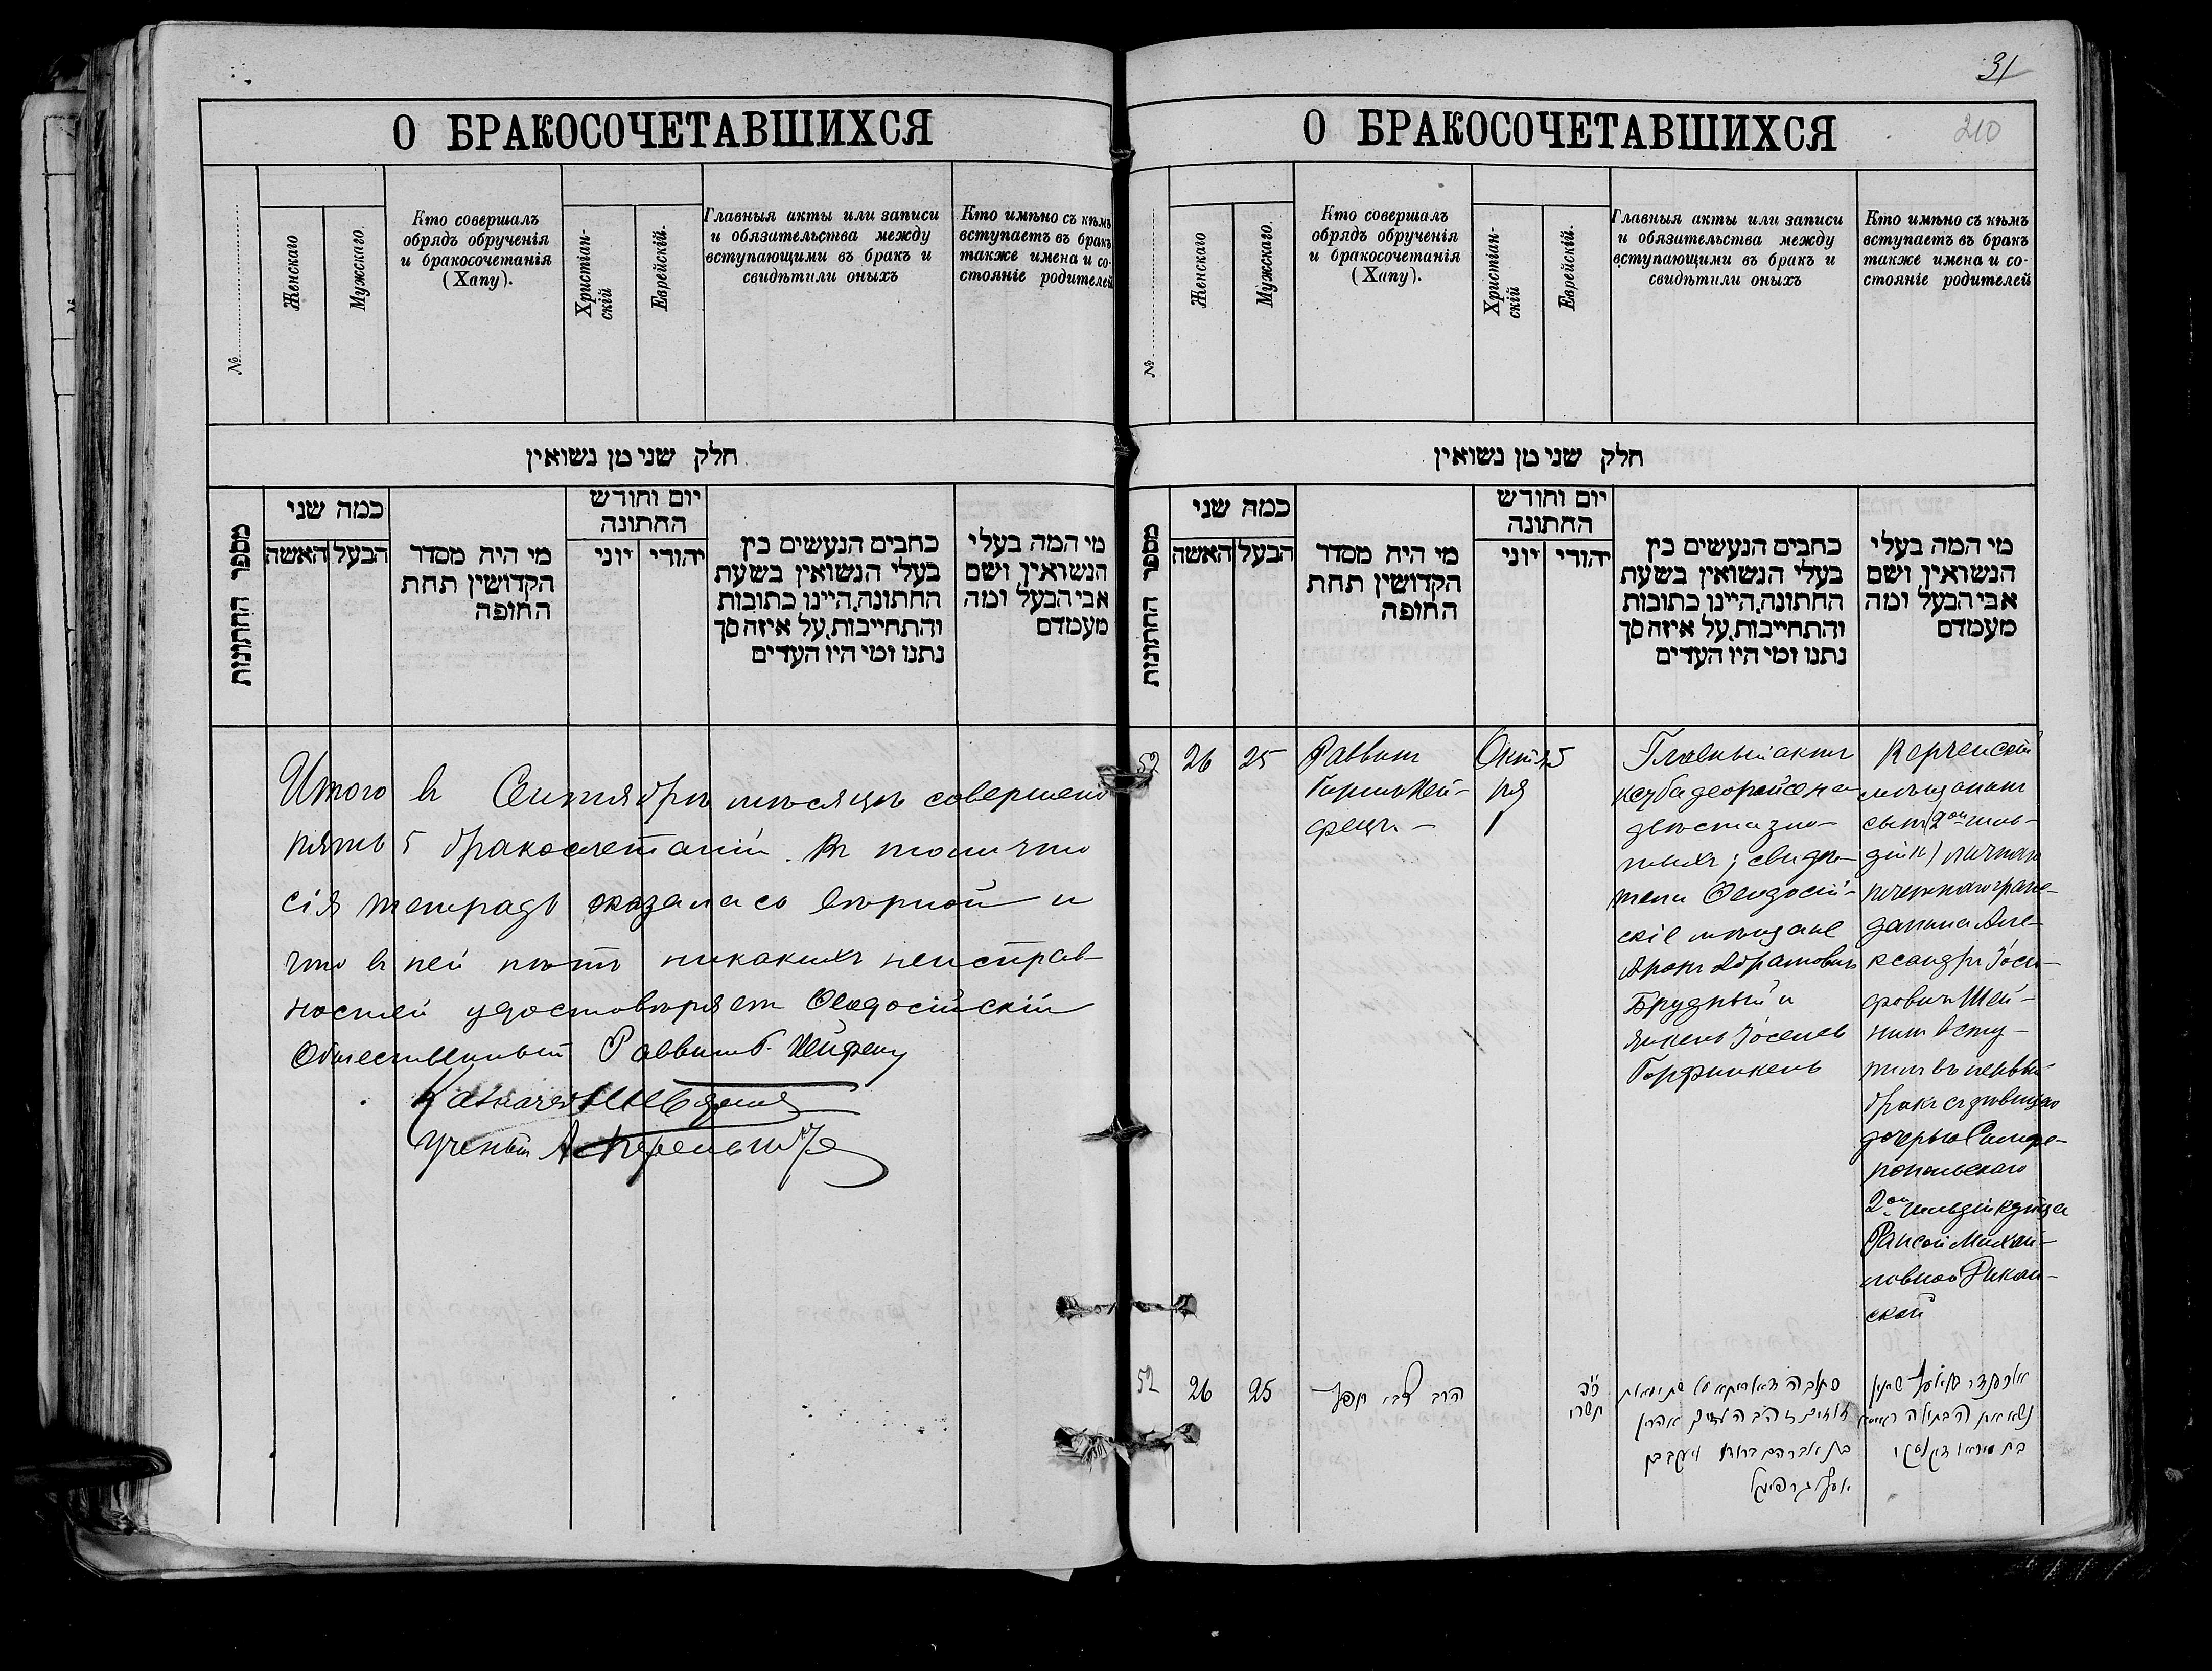 О БРАКОСОЧЕТАВШИХСЯ
№
Женскаго
Мужскаго.
Кто совершалъ
обрядъ обрученія
и бракосочетанія
(Хапу).
Христіан-
скій
Еврейскій.
Главныя акты или записи
и обязательства между
вступающими въ бракъ и
свидѣтили оныхъ
Кто имѣно съ кѣмъ
вступаетъ въ бракъ
также имена и со-
стояніе родителей
חלק שני מן נשואין
מספר החתונות
כמה שני
האשה
הבעל
מי היה מסדר
הקדושין תחת
החופה
יום וחודש
החתונה
יוני
יהודי
כתבים הנעשים בין
בעלי הנשואין בשעת
החתונה, היינו כתובות
והתחייבות, על איזה סך
נתנו ומי היו העדים
מי המה בעלי
הנשואין, ושם
אבי הבעל ומה
מעמדם
Итого въ Сентябрѣ мѣсяцѣ совершено
пять 5 бракосочетаній. Въ томъ что
сія тетрадь оказалась вѣрной и
что въ ней нѣтъ никакихъ неисправ
ностей удостовѣряетъ Ѳеодосійскій
Общественный Раввинъ Б. Хейфецъ
Казначей
Ученый
31
О БРАКОСОЧЕТАВШИХСЯ
210
№
Женскаго
Мужскаго.
Кто совершалъ
обрядъ обрученія
и бракосочетанія
(Хапу).
Христіан-
скій
Еврейскій.
Главныя акты или записи
и обязательства между
вступающими въ бракъ и
свидѣтили оныхъ
Кто имѣно съ кѣмъ
вступаетъ въ бракъ
также имена и со-
стояніе родителей
חלק שני מן נשואין
מספר החתונות
כמה שני
האשה
הבעל
מי היה מסדר
הקדושין תחת
החופה
יום וחודש
החתונה
יוני
יהודי
כתבים הנעשים בין
בעלי הנשואין בשעת
החתונה, היינו כתובות
והתחייבות, על איזה סך
נתנו ומי היו העדים
מי המה בעלי
הנשואין, ושם
אבי הבעל ומה
מעמדם
52
26
25
Раввинъ
Хей-
фецъ
Октяб
ря
1
Главный актъ
кетуба деорайсе на
двѣсти зло-
тыхъ; свидѣ-
тели Ѳеодосій-
скіе мѣщане
Аронъ Абрамовичъ
Брудный и
Янкель Іоселевъ
Гарфинкель
Керченскій
мѣщанинъ
сынъ (2ой гиль-
діи) личнаго
почетнаго граж-
данина Але-
ксандръ Іоси-
фовичъ Шей-
нинъ всту-
пилъ въ первый
бракъ съ дѣвицею
дочерью Симфе-
ропольскаго
2ой гильдіи купца
Раисой Михай-
ловной Рикан-
ской
52
26
25
הרב חפץ
תשרי
כתובה דאורייתא על
זהב העדים אהרן
בן אברהם ברודני ויעקב בן
אלכסנדר
נשא את הבתולה ראיסא
בת